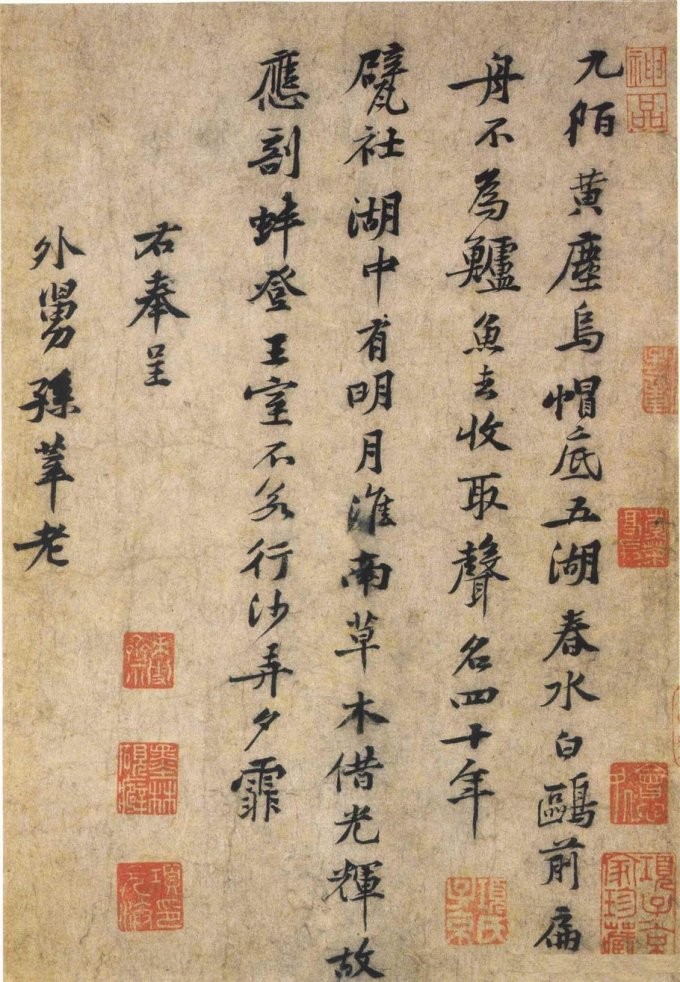 神品
九陌黃塵烏帽底五湖春水白鷗前扁
舟不為鱸魚去收取聲名四十年
甓社湖中有明月淮南草木借光輝故
應剖蚌登王室不若行沙弄夕霏
右奉呈
外舅孫莘老
項子京家珍藏
項氏子京